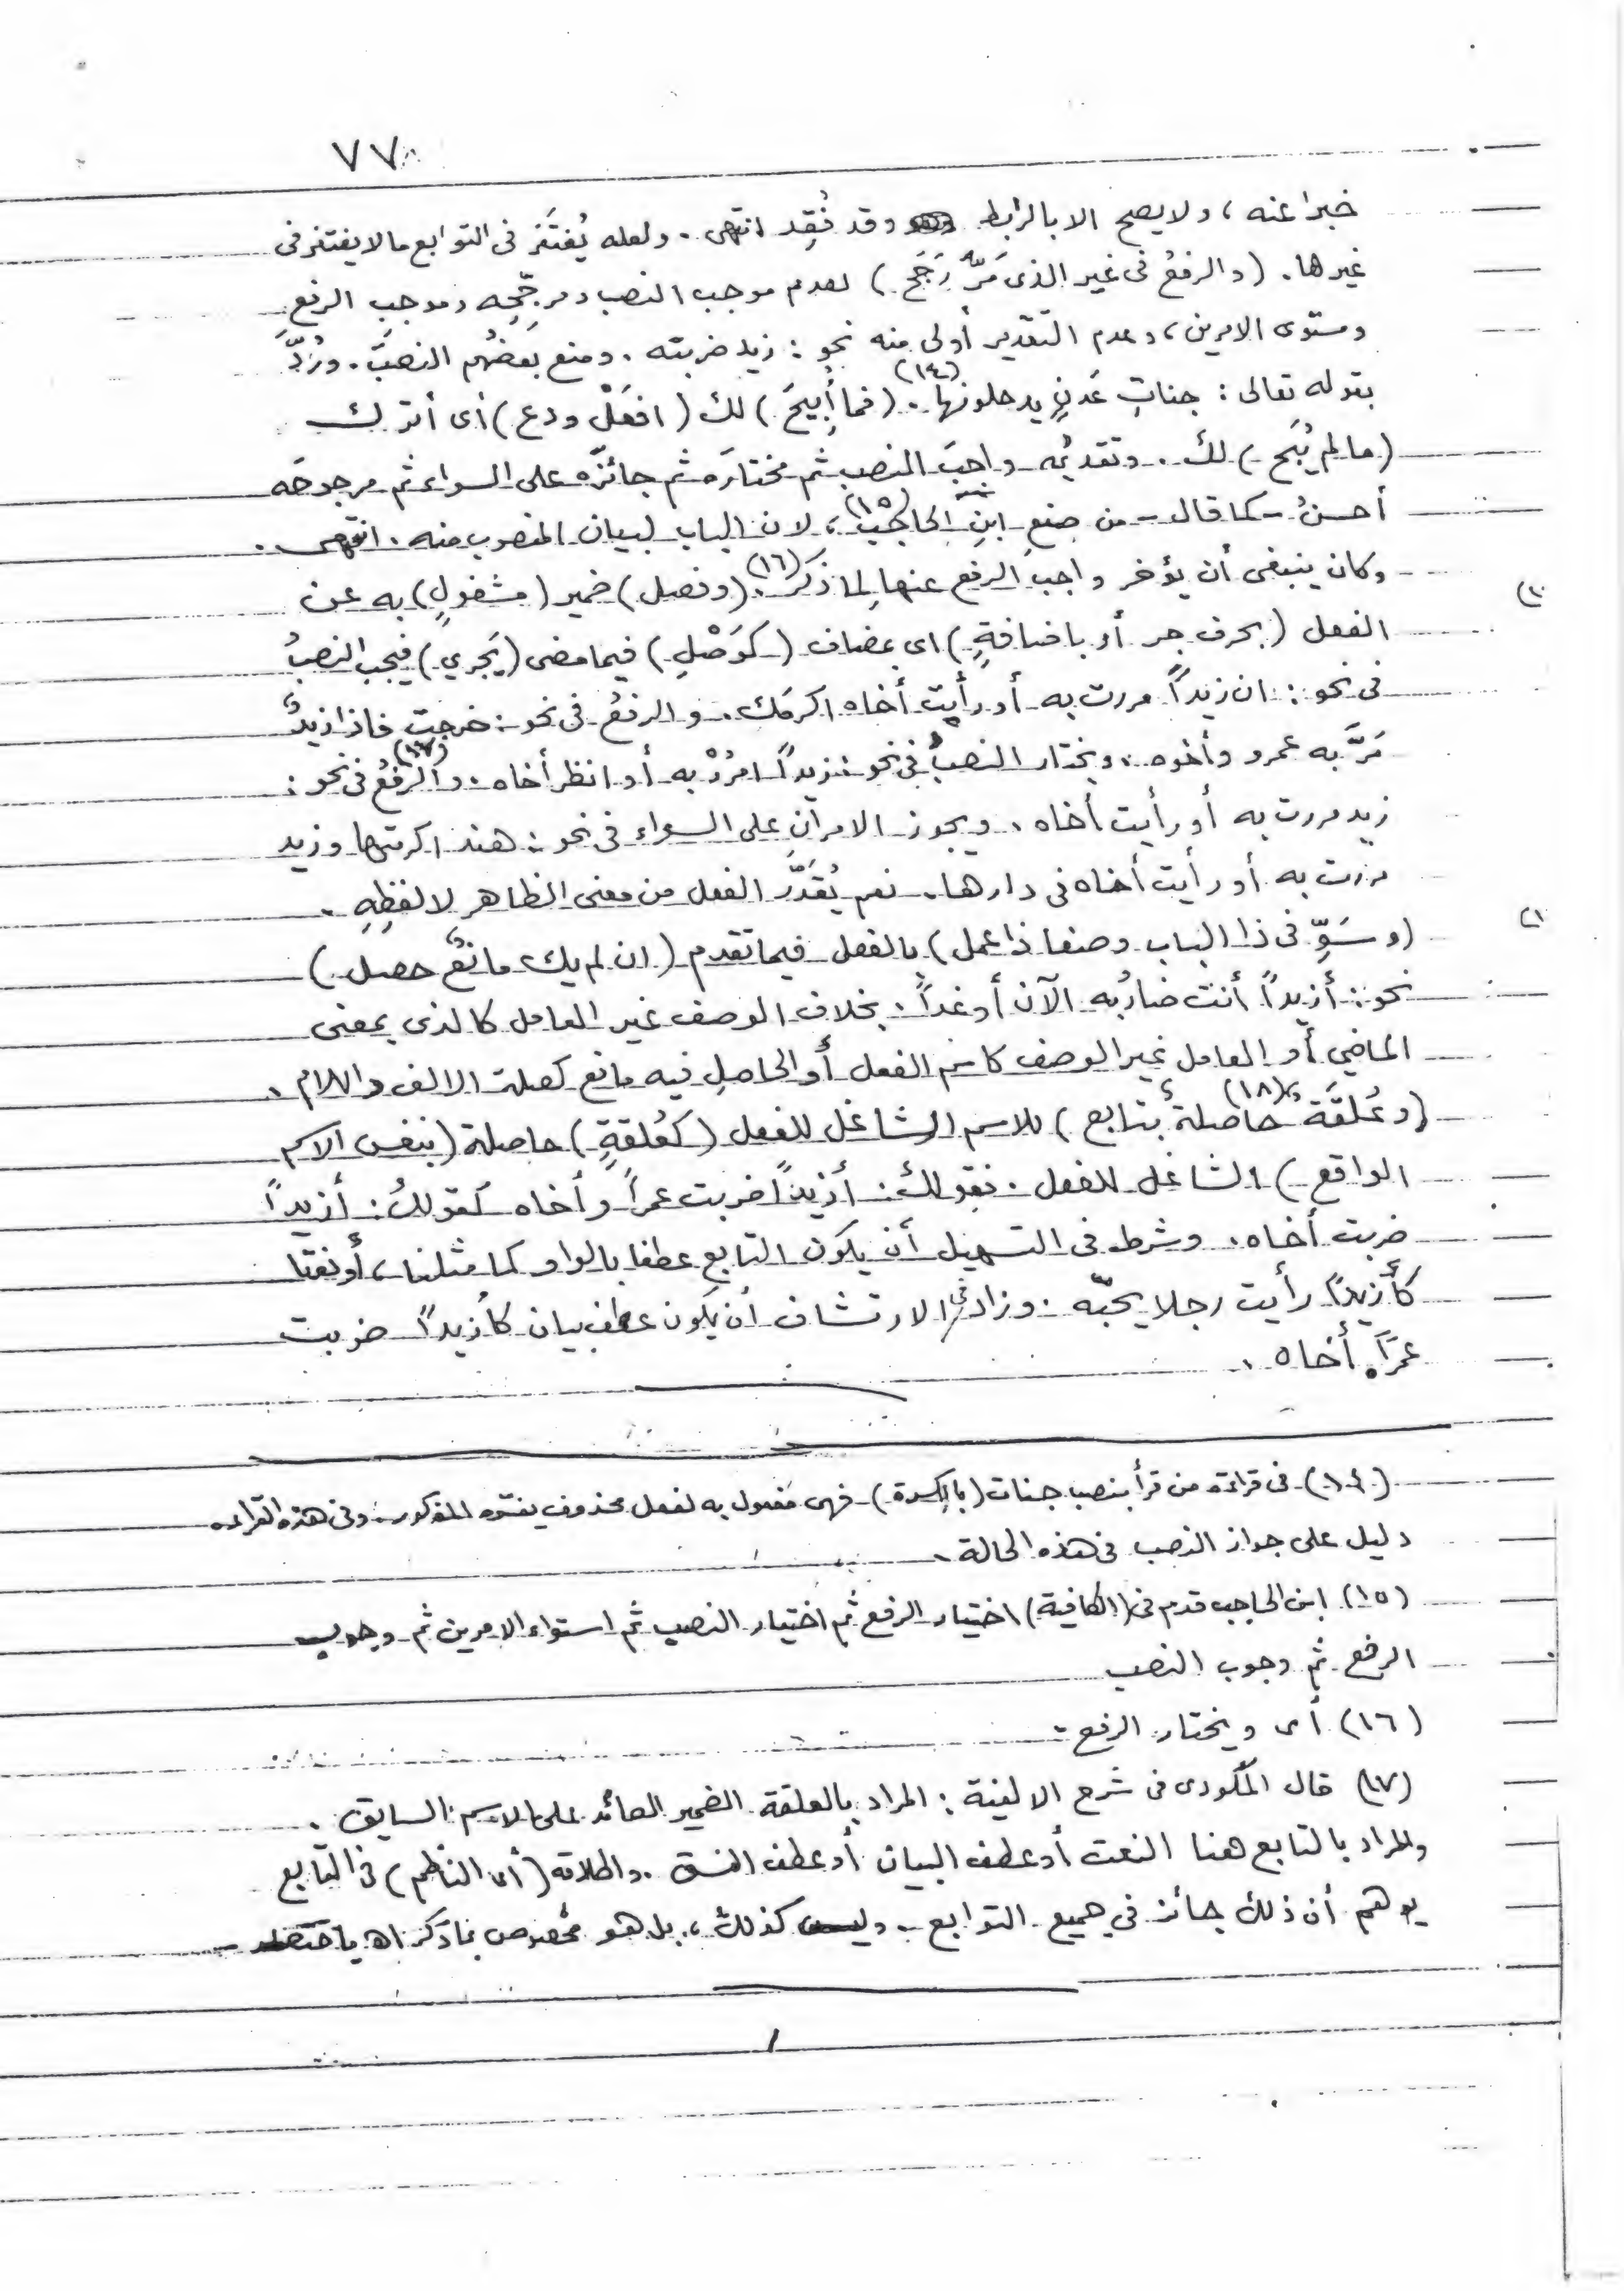 ٧٧
خبرا عنه ، ولا يصح الا بالرابط وقد فُقِد انتهى . ولعله يُغتَفَر فى التوابع مالا يغتفر فى
غيرها . (والرفعُ فى غير الذى مَرَّ رَجَحَ ) لعدم موجب النصب ومرجّحِه وموجب الرفع
ومستوى الامرين ، وعدم التقدير أولى منه نحو : زيد ضربته . ومنع بَعضُهم النصبَ . ورُدَّ
بقوله تعالى : جناتِ عَدنٍ يدخلونها (١٤) . (فما أُبيحَ ) لك (افعَلْ ودع ) أى أترك
(مالم يُبَح ) لك . وتقديمُه واجبَ النصب ثم مختارَه ثم جائزَه على السواء ثم مرجوحَه
أحسنُ - كما قال - من صنعِ ابنِ الحاجب (١٥) ، لان الباب لبيان المنصوب منه . انتهى .
وكان ينبغى أن يؤخر واجبَ الرفع عنها لِما ذَكَر (١٦) . (وفصل ) ضمير (مشغولٍ ) به عن
الفعل (بحرف جر أو باضافةٍ ) اى بمضاف (كوَصْلٍ ) فيما مضى (يَجري ) فيجب النصبُ
فى نحو : ان زيداً مررت به أو رأيت أخاه اكرمَك . والرفعُ فى نحو : خرجت فاذا زيدٌ
مَرَّ به عمرو وأخوه . ويختار النصبُ فى نحو : زيداً امرُرْ به أو انظر أخاه . والرفعُ (١٧) فى نحو :
زيد مررت به أو رأيت أخاه . ويجوز الامران على السواء فى نحو : هند اكرمتها وزيد
مررت به أو رأيت أخاه فى دارها . نعم يُقدَّر الفعل من معنى الظاهر لا لفظِهِ .
(وسَوِّ فى ذا الباب وصفا ذا عمل ) بالفعل فيما تقدم (ان لم يك مانعٌ حصل )
نحو : أزيداً أنت ضاربُه الآن أو غداً . بخلاف الوصف غير العامل كالذى بمعنى
الماضي أو العامل غير الوصف كاسم الفعل أو الحاصلِ فيه مانع كصلة الالف واللام .
(وعُلقَةٌ حاصلةٌ (١٨) بتابع ) للاسم الشاغل للفعل (كعُلقةٍ ) حاصلة (بنفس الاسم
الواقع ) الشاغل للفعل . فقولك : أزيداً ضربت عمراً وأخاه كقولك : أزيداً
ضربت أخاه . وشرط فى التسهيل أن يكون التابع عطفا بالواو كما مثلنا ، أو نعتا
كأزيداً رأيت رجلا يحبّه . وزاد فى الارتشاف أن يكون عطف بيان كأزيداً ضربت
عمرَاً أخاه .
(١٤) فى قراءة من قرأ بنصب جنات (بالكسرة ) فهى مفعول به لفعل محذوف يفسّره المذكور . وفى هذه القراءه
دليل على جواز النصب فى هذه الحالة .
(١٥) ابن الحاجب قدم فى (الكافية ) اختيار الرفع ثم اختيار النصب ثم استواء الامرين ثم وجوب
الرفع ثم وجوب النصب
(١٦) أى ويختار الرفع -
(١٧) قال المكودى فى شرح الالفية : المراد بالعلقة الضمير العائد على الاسم السابق .
والمراد بالتابع هنا النعت أو عطف البيان أو عطف النسق . واطلاقه (أى الناظم ) فى التابع
يوهم أن ذلك جائز في جميع التوابع . وليس كذلك ، بل هو مخصوص بما ذكر اه باختصار